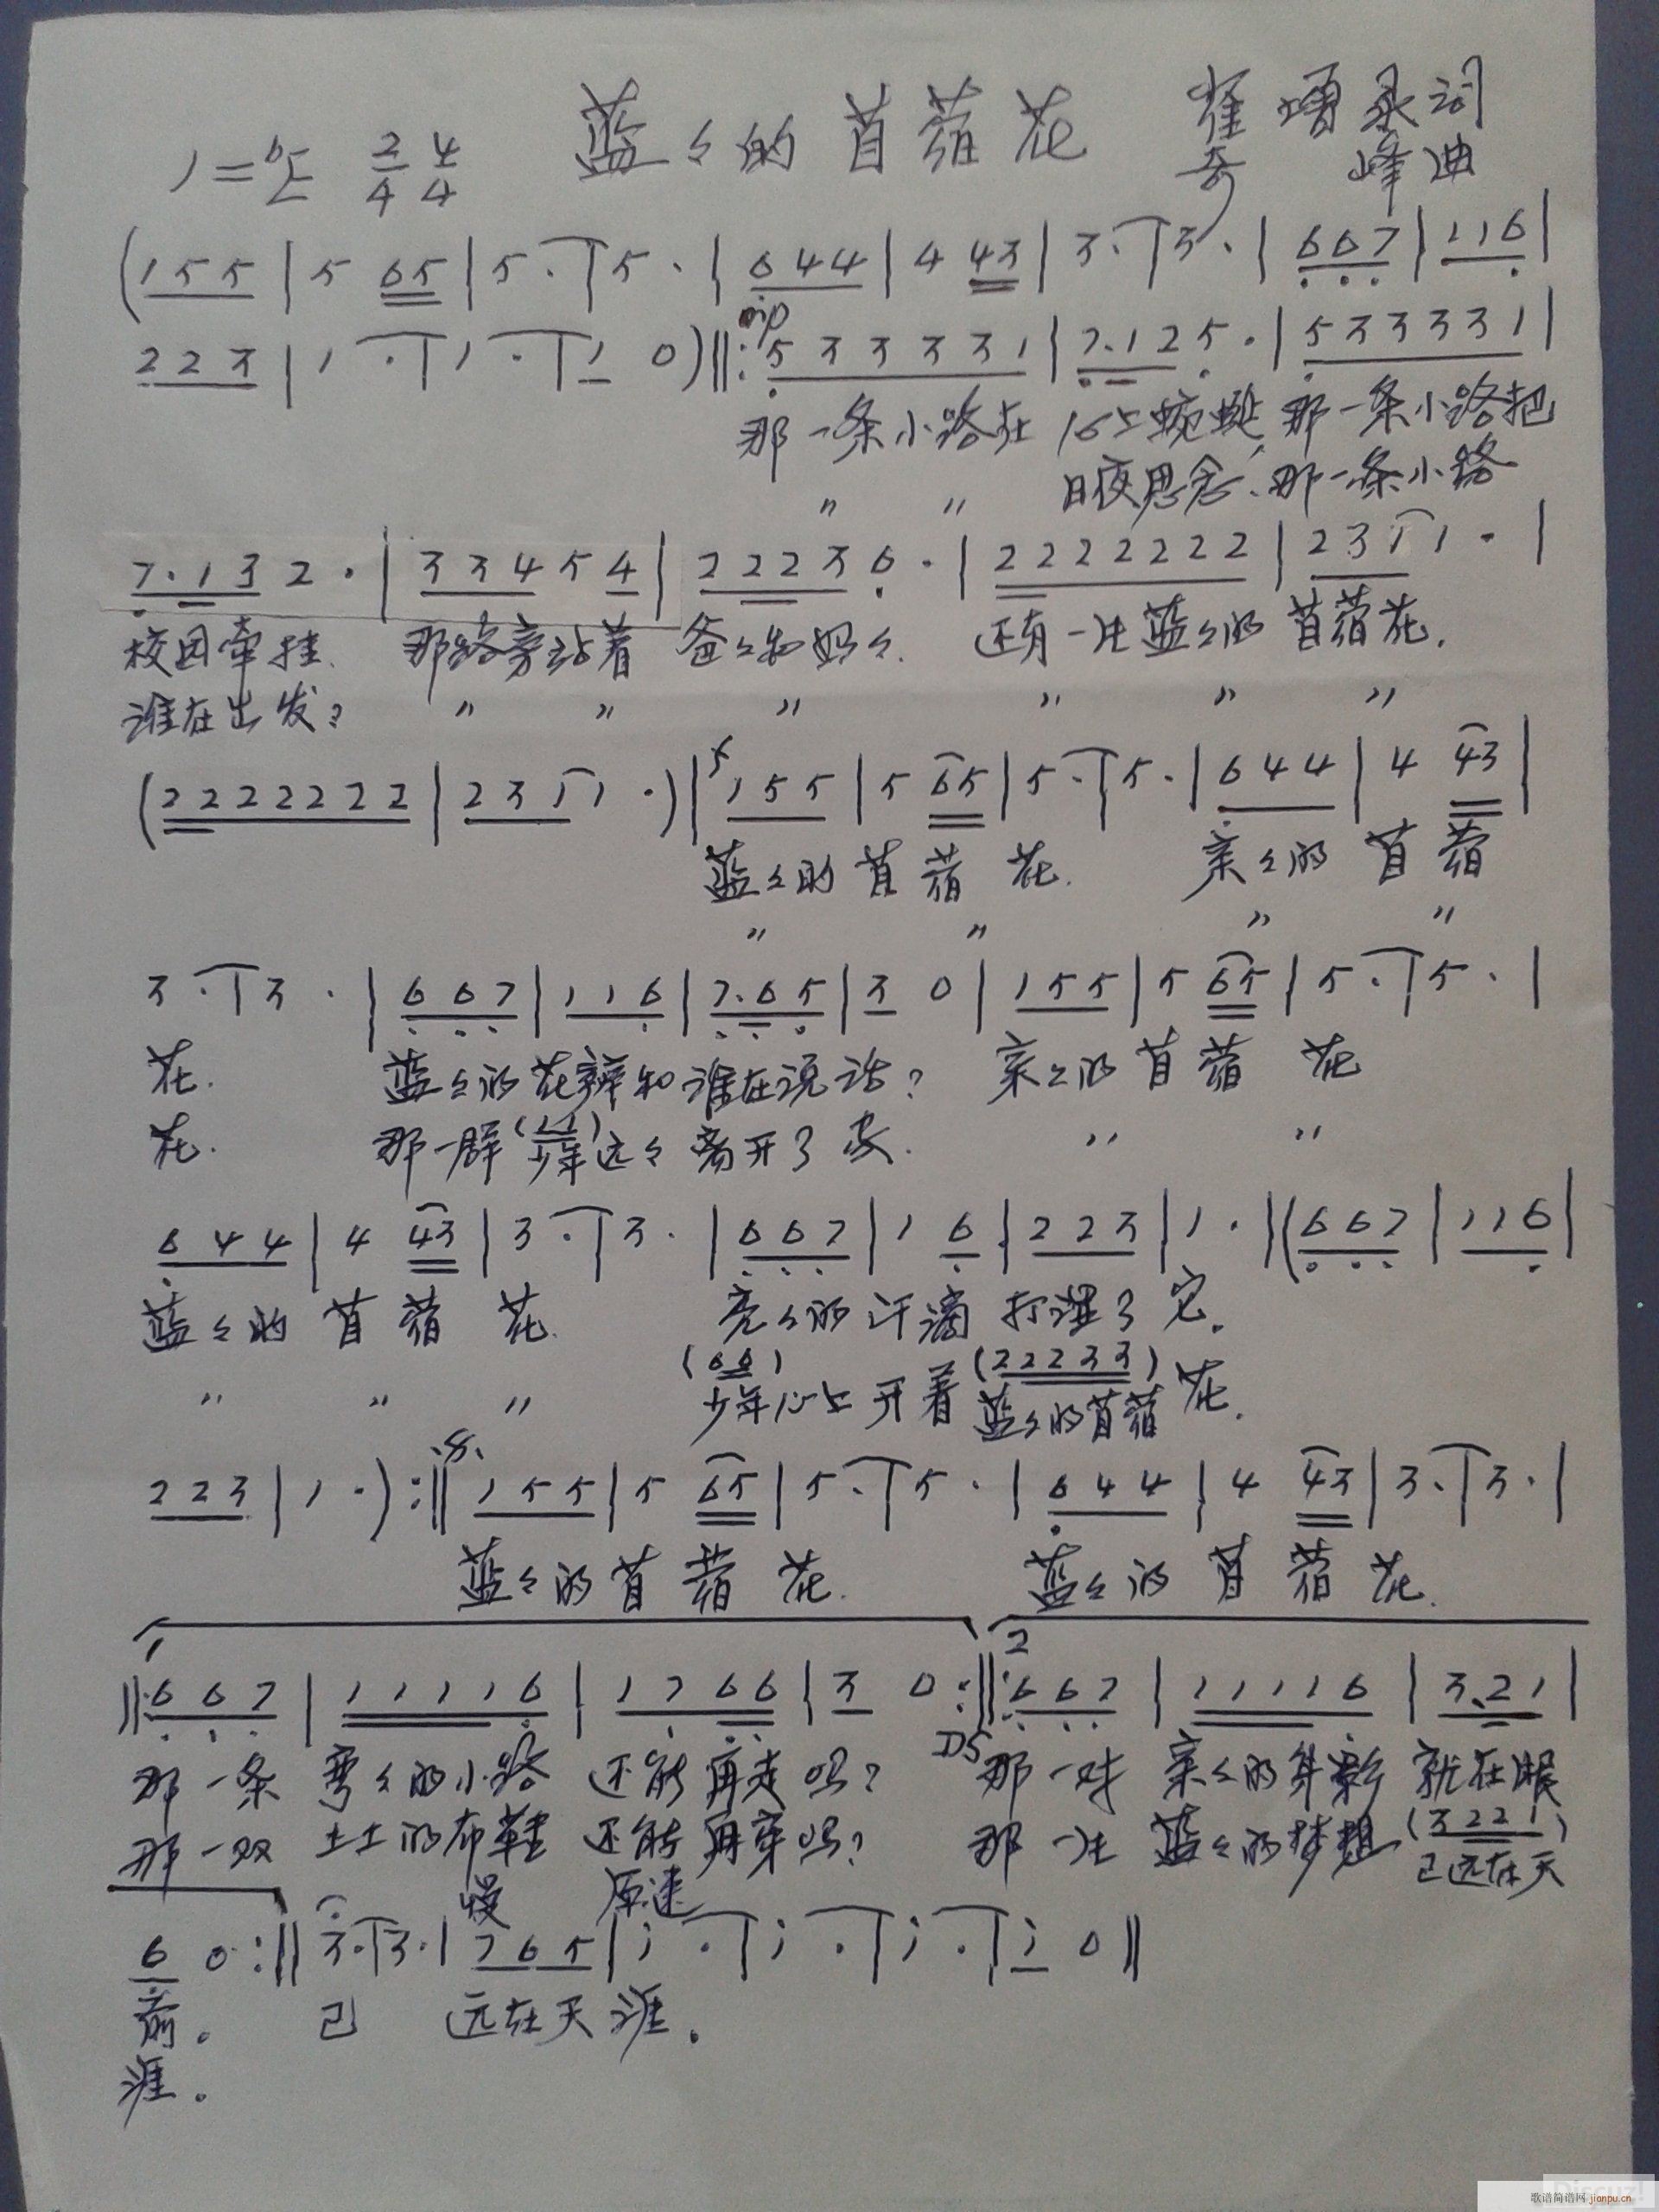 蓝々的苜蓿花 崔增录词
1=♭E 2/4 4/4 奇峰曲
(1 5 5 | 5 6 5 | 5 · | 5 · | 6 4 4 | 4 4 3 | 3 · | 3 · | 6 6 7 | 1 1 6 |
2 2 3 | 1 · | 1 · | 1 0) ‖: 5 3 3 3 3 1 | 7 · 1 2 5 · | 5 3 3 3 3 1 |
mp
那一条小路在 心上蜿蜒, 那一条小路把
〃 〃 日夜思念、那一条小路
7 · 1 3 2 · | 3 3 4 5 4 | 2 2 2 3 6 · | 2 2 2 2 2 2 2 | 2 3 1 1 · |
校园牵挂. 那路旁站着 爸々和妈々. 还有一片蓝々的苜蓿花.
谁在出发? 〃 〃 〃 〃 〃 〃
(2 2 2 2 2 2 2 | 2 3 1 1 ·) | 1 5 5 | 5 6 5 | 5 · | 5 · | 6 4 4 | 4 4 3 |
蓝々的苜蓿花. 亲々的苜蓿
〃 〃 〃 〃
3 · | 3 · | 6 6 7 | 1 1 6 | 7 · 6 5 | 3 0 | 1 5 5 | 5 6 5 | 5 · | 5 · |
花. 蓝々的花瓣和谁在说话? 亲々的苜蓿花
花. 那一群(1 1)少年远々离开了家. 〃 〃
6 4 4 | 4 4 3 | 3 · | 3 · | 6 6 7 | 1 6 | 2 2 3 | 1 · | (6 6 7 | 1 1 6 |
蓝々的苜蓿花. 亮々的汗滴打湿了它.
〃 〃 〃 (6 6)少年心上开着(2 2 2 3 3)蓝々的苜蓿花.
2 2 3 | 1 ·) :‖ 1 5 5 | 5 6 5 | 5 · | 5 · | 6 4 4 | 4 4 3 | 3 · | 3 · |
蓝々的苜蓿花. 蓝々的苜蓿花.
1 2
‖: 6 6 7 | 1 1 1 1 6 | 1 7 6 6 | 3 0 :‖: 6 6 7 | 1 1 1 1 6 | 3 · 2 1 |
DS
那一条弯々的小路还能再走吗? 那一对亲々的身影就在眼
那一双土土的布鞋还能再穿吗? 那一片蓝々的梦想(3 2 2 1)已远在天
慢 原速
6 0 :‖ 3 · | 3 · | 7 6 5 | i · | i · | i · | i 0 ‖
前。 已 远在天涯.
涯。
歌谱简谱网 jianpu.cn
Discuz!